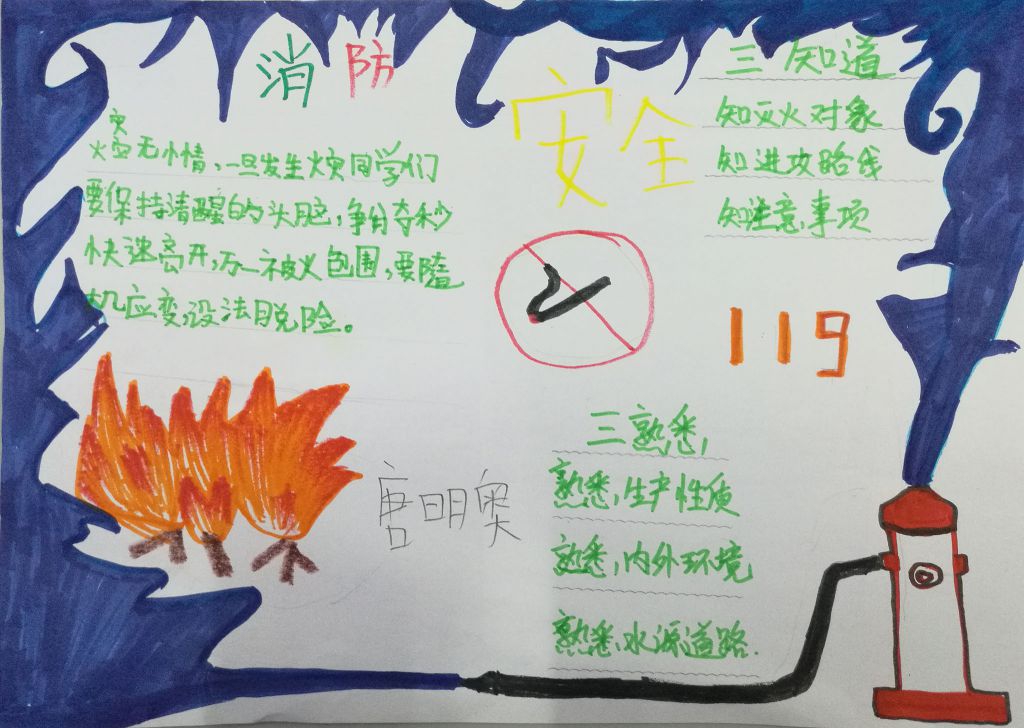 消防
安全
灾
火灾无情，一旦发生火灾同学们
要保持清醒的头脑，争分夺秒
快速离开，万一被火包围，要随
机应变，设法脱险。
三知道
知灭火对象
知进攻路线
知注意事项
119
三熟悉，
熟悉，生产性质
熟悉，内外环境
熟悉，水源道路．
唐明奥